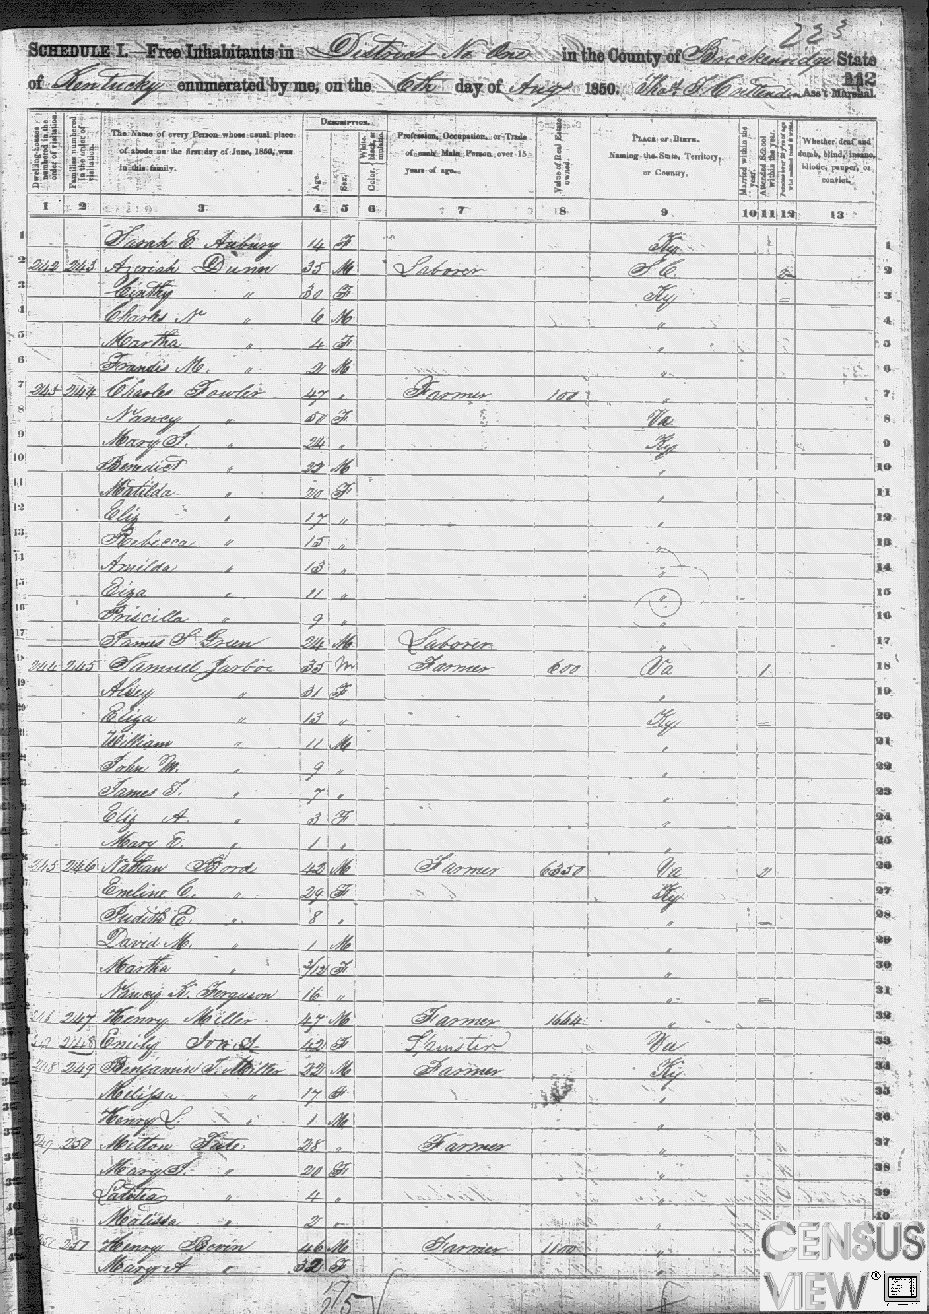 223
SCHEDULE I.—Free Inhabitants in District No One in the County of Breckenridge State
of Kentucky enumerated by me, on the 6th day of Aug 1850. Thos. T. Crittenden Ass't Marshal.
112
Dwelling-houses numbered in the order of visitation.
Families numbered in the order of visitation.
The Name of every Person whose usual place of abode on the first day of June, 1850, was in this family.
DESCRIPTION.
Age.
Sex.
White, black, or mulatto.
Color.
Profession, Occupation, or Trade of each Male Person over 15 years of age.
Value of Real Estate owned.
PLACE OF BIRTH.
Naming the State, Territory, or Country.
Married within the year.
Attended School within the year.
Whether deaf and dumb, blind, insane, idiotic, pauper, or convict.
1 2 3 4 5 6 7 8 9 10 11 12 13
1 Sarah E 14 F Ky 1
2 242 243 Dunn 35 M Laborer S.C. 2
3 Cinthy " 30 F Ky 3
4 Charles N " 6 M " 4
5 Martha " 4 F " 5
6 Francis M. " 2 M " 6
7 243 244 Charles Fowler 47 " Farmer 100 " 7
8 Nancy " 50 F Va 8
9 Mary " 24 " Ky 9
10 Benedict " 22 M " 10
11 Matilda " 20 F " 11
12 Eliz " 17 " " 12
13 Rebecca " 15 " " 13
14 Amilda " 13 " " 14
15 Eliza " 11 " " 15
16 Priscilla " 9 " " 16
17 James S. Green 24 M Laborer " 17
244 245 Samuel Jarboe 35 M Farmer 600 Va 1 18
Alsey " 31 F " 19
Eliza " 13 " Ky 20
William " 11 M " 21
John M. " 9 " " 22
James T. " 7 " " 23
Eliz A. " 3 F " 24
Mary E. " 1 " " 25
245 246 Nathan Bord 42 M Farmer 6350 Va 26
Emeline C. " 29 F Ky 27
Judith E. " 8 " " 28
David M. " 1 M " 29
Martha " F " 30
Nancy K. Ferguson 16 " " 31
247 Henry Miller 47 M Farmer 1664 " 32
248 Emily 42 F Spinster Va 33
249 Benjamin T. Miller 22 M Farmer Ky 34
Melissa " 17 F "
Henry L. " 1 M " 36
250 Milton Tate 28 " Farmer " 37
Mary " 20 F " 38
" 4 " " 39
Malissa " 2 " " 40
251 Henry Bevin 46 M Farmer 1100 "
Mary A " 32 F "
CENSUS
VIEW®